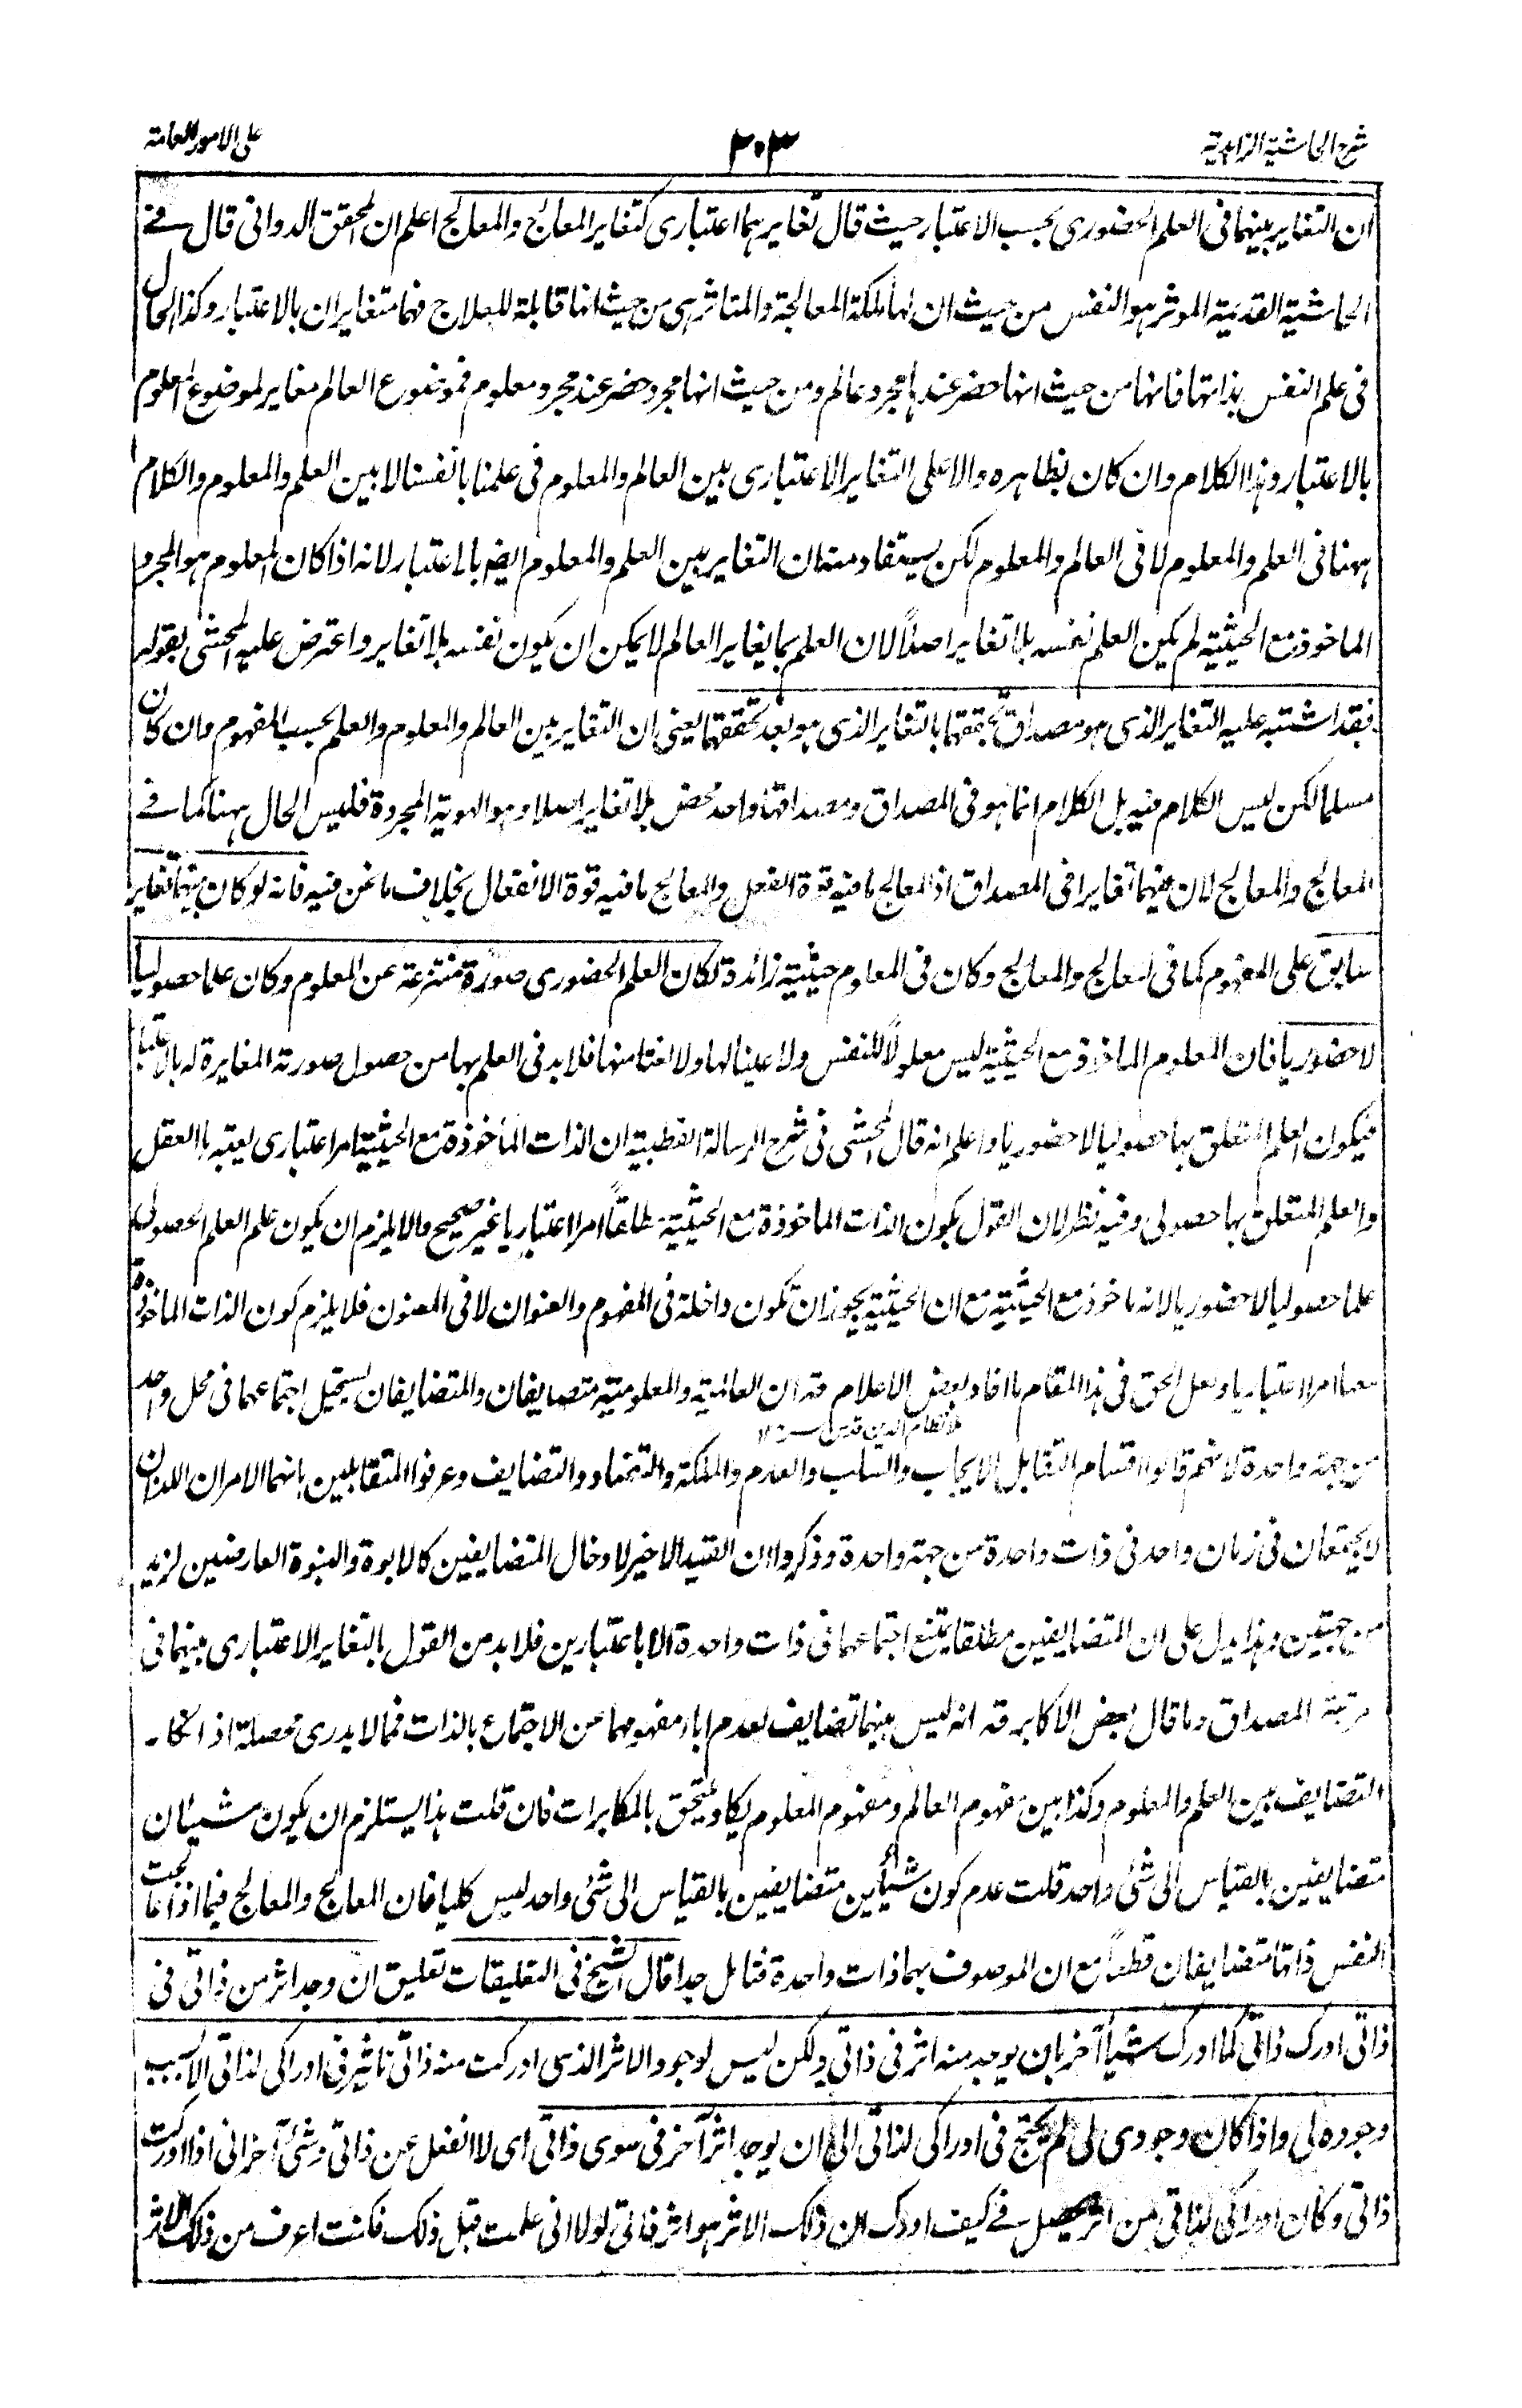 شرح الحاشية الزاهدية
٢٠٣
على الامور العامة
ان التغاير بينهما فى العلم الحضورى بحسب الاعتبار حيث قال تغايرهما اعتبارى كتغاير المعالج والمعالج اعلم ان المحقق الدوانى قال فى
الحاشية القديمة الموثر هو النفس من حيث ان لها ملكة المعالجة والمتاثر هى من حيث انها قابلة للعلاج فهما متغايران بالاعتبار وكذا الحال
فى علم النفس بذاتها فانها من حيث انها حضر عندها مجرد عالم ومن حيث انها مجرد حضر عند مجرد معلوم فموضوع العالم مغاير لموضوع المعلوم
بالاعتبار وهذا الكلام وان كان بظاهره دالا على التغاير الاعتبارى بين العالم والمعلوم فى علمنا بانفسنا لا بين العلم والمعلوم والكلام
ههنا فى العلم والمعلوم لا فى العالم والمعلوم لكن يستفاد منه ان التغاير بين العلم والمعلوم ايضا بالاعتبار لانه اذا كان المعلوم هو المجرد
الماخوذ مع الحيثية لم يكن العلم نفسه بلا تغاير اصلاً لان العلم بما يغاير العالم لا يمكن ان يكون نفسه بلا تغاير واعترض عليه المحشى بقوله
فقد اشتبه عليه التغاير الذى هو مصداق تحققهما بالتغاير الذى هو بعد تحققهما يعنى ان التغاير بين العالم والمعلوم والعلم بحسب المفهوم وان كان
مسلما لكن ليس الكلام فيه بل الكلام انما هو فى المصداق ومصداقها واحد محض بلا تغاير اصلا وهو الهوية المجردة فليس الحال ههنا كما فى
المعالج والمعالج لان بينهما تغايرا فى المصداق اذ المعالج ما فيه قوة الفعل والمعالج ما فيه قوة الانفعال بخلاف ما نحن فيه فانه لو كان بينهما تغاير
سابق على المفهوم كما فى المعالج والمعالج وكان فى المعلوم حيثية زائدة لكان العلم الحضورى صورة منتزعة عن المعلوم وكان علما حصوليا
لا حضوريا فان المعلوم الماخوذ مع الحيثية ليس معلولاً للنفس ولا عينا لها ولا نعتا منها فلا بد فى العلم بها من حصول صورته المغايرة له بالاعتبار
فيكون العلم المتعلق بها حصوليا لا حضوريا واعلم انه قال المحشى فى شرح الرسالة القطبية ان الذات الماخوذة مع الحيثية امر اعتبارى يعتبرها العقل
والعلم المتعلق بها حصولى وفيه نظر لان القول بكون الذات الماخوذة مع الحيثية مطلقاً امرا اعتباريا غير صحيح والا يلزم ان يكون علم العلم الحصولى
علما حصوليا لا حضوريا لانه ماخوذ مع الحيثية مع ان الحيثية يجوز ان تكون داخلة فى المفهوم والعنوان لا فى المعنون فلا يلزم كون الذات الماخوذة
معها امرا اعتباريا ولعل الحق فى هذا المقام ما افاد بعض الاعلام قد ان العالمية والمعلومية متضايفان والمتضايفان يستحيل اجتماعهما فى محل واحد
ملا نظام الدين قدس سره ١٢
من جهة واحدة لانهم قالوا اقسام التقابل الايجاب والسلب والعدم والملكة والتضاد والتضايف وعرفوا المتقابلين بانهما الامران اللذان
لا يجتمعان فى زمان واحد فى ذات واحدة من جهة واحدة وذكروا ان القيد الاخير لادخال المتضايفين كالابوة والبنوة العارضين لزيد
من جهتين وهذا يدل على ان المتضايفين مطلقا يمتنع اجتماعهما فى ذات واحدة الا باعتبارين فلا بد من القول بالتغاير الاعتبارى بينهما فى
مرتبة المصداق وما قال بعض الاكابر قد انه ليس بينهما تضايف لعدم اباء مفهومهما عن الاجتماع بالذات فمما لا يدرى محصله اذ انكار
التضايف بين العلم والمعلوم وكذا بين مفهوم العالم ومفهوم المعلوم يكاد يلتحق بالمكابرات فان قلت هذا يستلزم ان يكون شيئان
متضايفين بالقياس الى شئ واحد قلت عدم كون شيأين متضايفين بالقياس الى شئ واحد ليس كليا فان المعالج والمعالج فيما اذا عالجت
النفس ذاتها متضايفان قطعاً مع ان الموصوف بهما ذات واحدة فتامل جدا قال الشيخ فى التعليقات تعليق ان وجد اثر من ذاتى فى
ذاتى ادرك ذاتى كما ادرك شيأ آخر بان يوجد منه اثر فى ذاتى ولكن ليس لوجود الاثر الذى ادركت منه ذاتى تاثير فى ادراكى لذاتى الا بسبب
وجوده لى واذا كان وجودى لى لم يحتج فى ادراكى لذاتى الى ان يوجد اثر آخر فى سوى ذاتى اى لا انفعل عن ذاتى وشئ آخر انى اذا ادركت
ذاتى وكان ادراكى لذاتى من اثر يحصل فى كيف ادرك ان ذلك الاثر هو اثر ذاتى لولا انى علمت قبل ذلك فكنت اعرف من ذلك الاثر